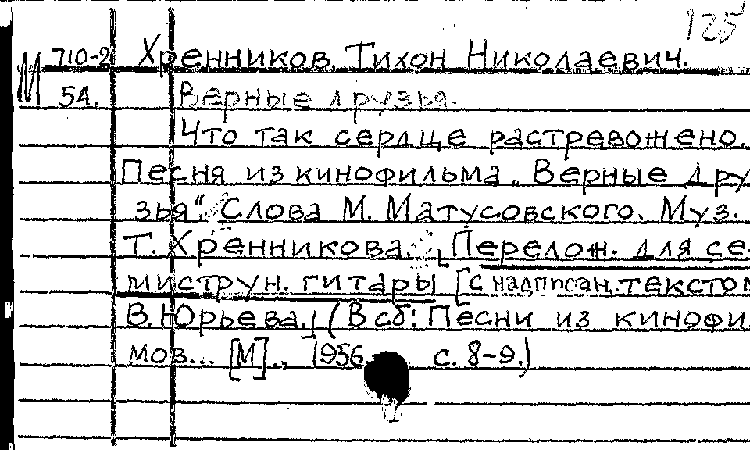 125
М 710-2 Хренников Тихон Николаевич.
54. Верные друзья.
Что так сердце растревожено.
Песня из кинофильма „Верные дру
зья". Слова М. Матусовского. Муз.
Т. Хренникова. [Перелож. для се-
миструн. гитары [с надписан. текстом
В. Юрьева.] (В сб: Песни из кинофи
мов... [М]., 1956. с. 8-9.)